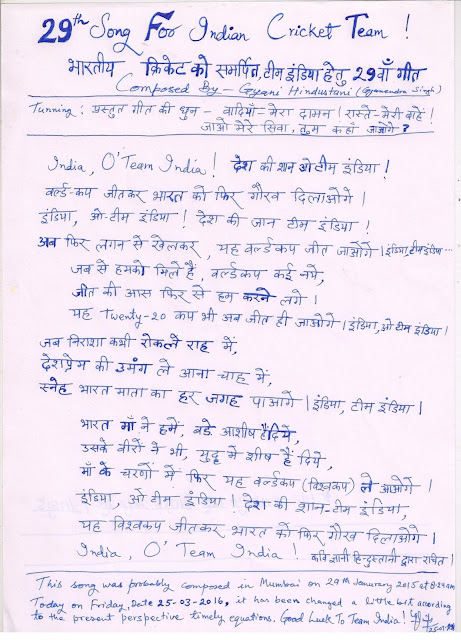 29th Song For Indian Cricket Team !
भारतीय क्रिकेट को समर्पित, टीम इंडिया हेतु 29वाँ गीत
Composed By - Gyani Hindustani (Gyanendra Singh)
Tunning : प्रस्तुत गीत की धुन - वादियाँ - मेरा दामन । रास्ते - मेरी बाहें !
जाओ मेरे सिवा, तुम कहाँ जाओगे ?
India, O'Team India ! देश की शान ओ टीम इंडिया !
वर्ल्ड-कप जीतकर भारत को फिर गौरव दिलाओगे ।
इंडिया, ओ-टीम इंडिया ! देश की जान टीम इंडिया !
अब फिर लगन से खेलकर, यह वर्ल्डकप जीत जाओगे । इंडिया, टीम इंडिया ...
जब से हमको मिले हैं, वर्ल्डकप कई नये,
जीत की आस फिर से हम करने लगे ।
यह Twenty-20 कप भी अब जीत ही जाओगे । इंडिया, ओ टीम इंडिया ।
जब निराशा कभी रोकले राह में,
देशप्रेम की उमंग ले आना चाह में,
स्नेह भारत माता का हर जगह पाओगे । इंडिया, टीम इंडिया ।
भारत माँ ने हमें, बड़े आशीष हैं दिये,
उसके वीरों ने भी, युद्ध में शीष हैं दिये,
माँ के चरणों में फिर यह वर्ल्डकप (विश्वकप) ले आओगे ।
इंडिया, ओ टीम इंडिया । देश की शान-टीम इंडिया,
यह विश्वकप जीतकर भारत को फिर गौरव दिलाओगे ।
India, O' Team India ! कवि ज्ञानी हिन्दुस्तानी द्वारा रचित ।
This song was probably composed in Mumbai on 29th Janurary 2015 at
Today on Friday, Date 25-03-2016, it has been changed a little bit according
to the present perspective timely equations. Good Luck To Team India!